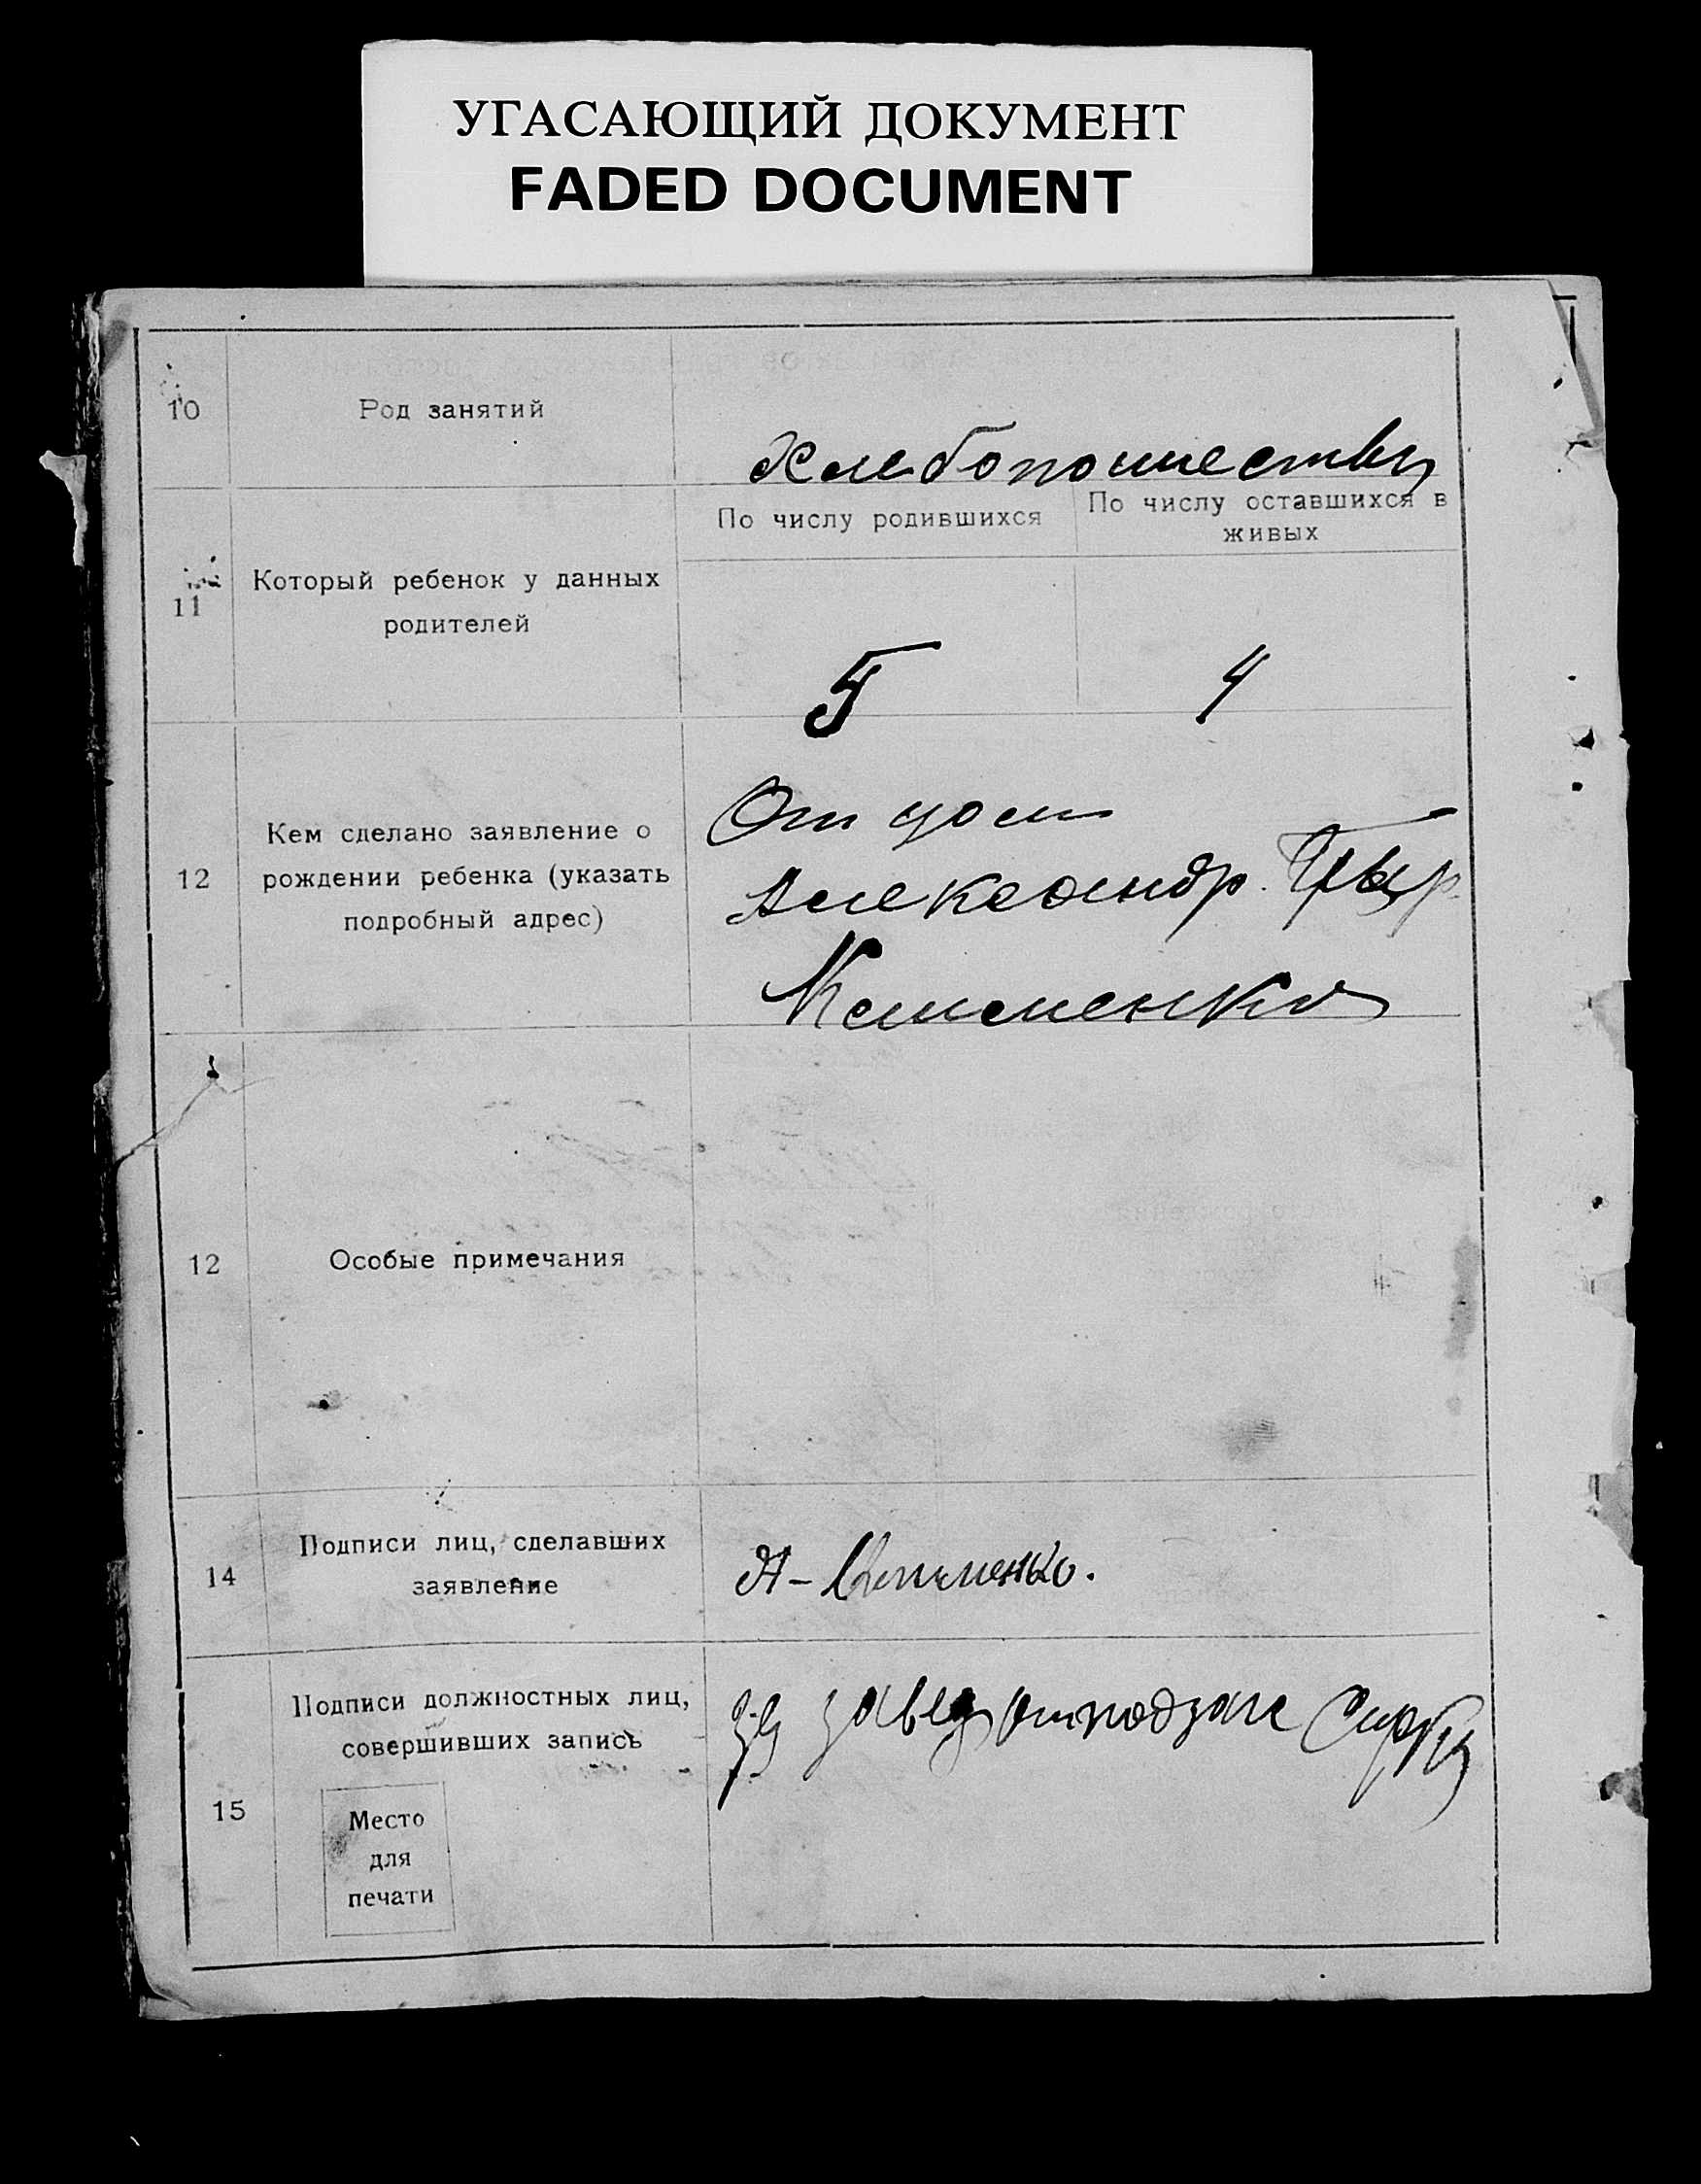 УГАСАЮЩИЙ ДОКУМЕНТ
FADED DOCUMENT
10
Род занятий
11
Который ребенок у данных
родителей
По числу родившихся
По числу оставшихся в
живых
5
4
12
Кем сделано заявление о
рождении ребенка (указать
подробный адрес)
Отцом
Александр.
12
Особые примечания
14
Подписи лиц, сделавших
заявление
А-
15
Подписи должностных лиц,
совершивших запись
Место
для
печати